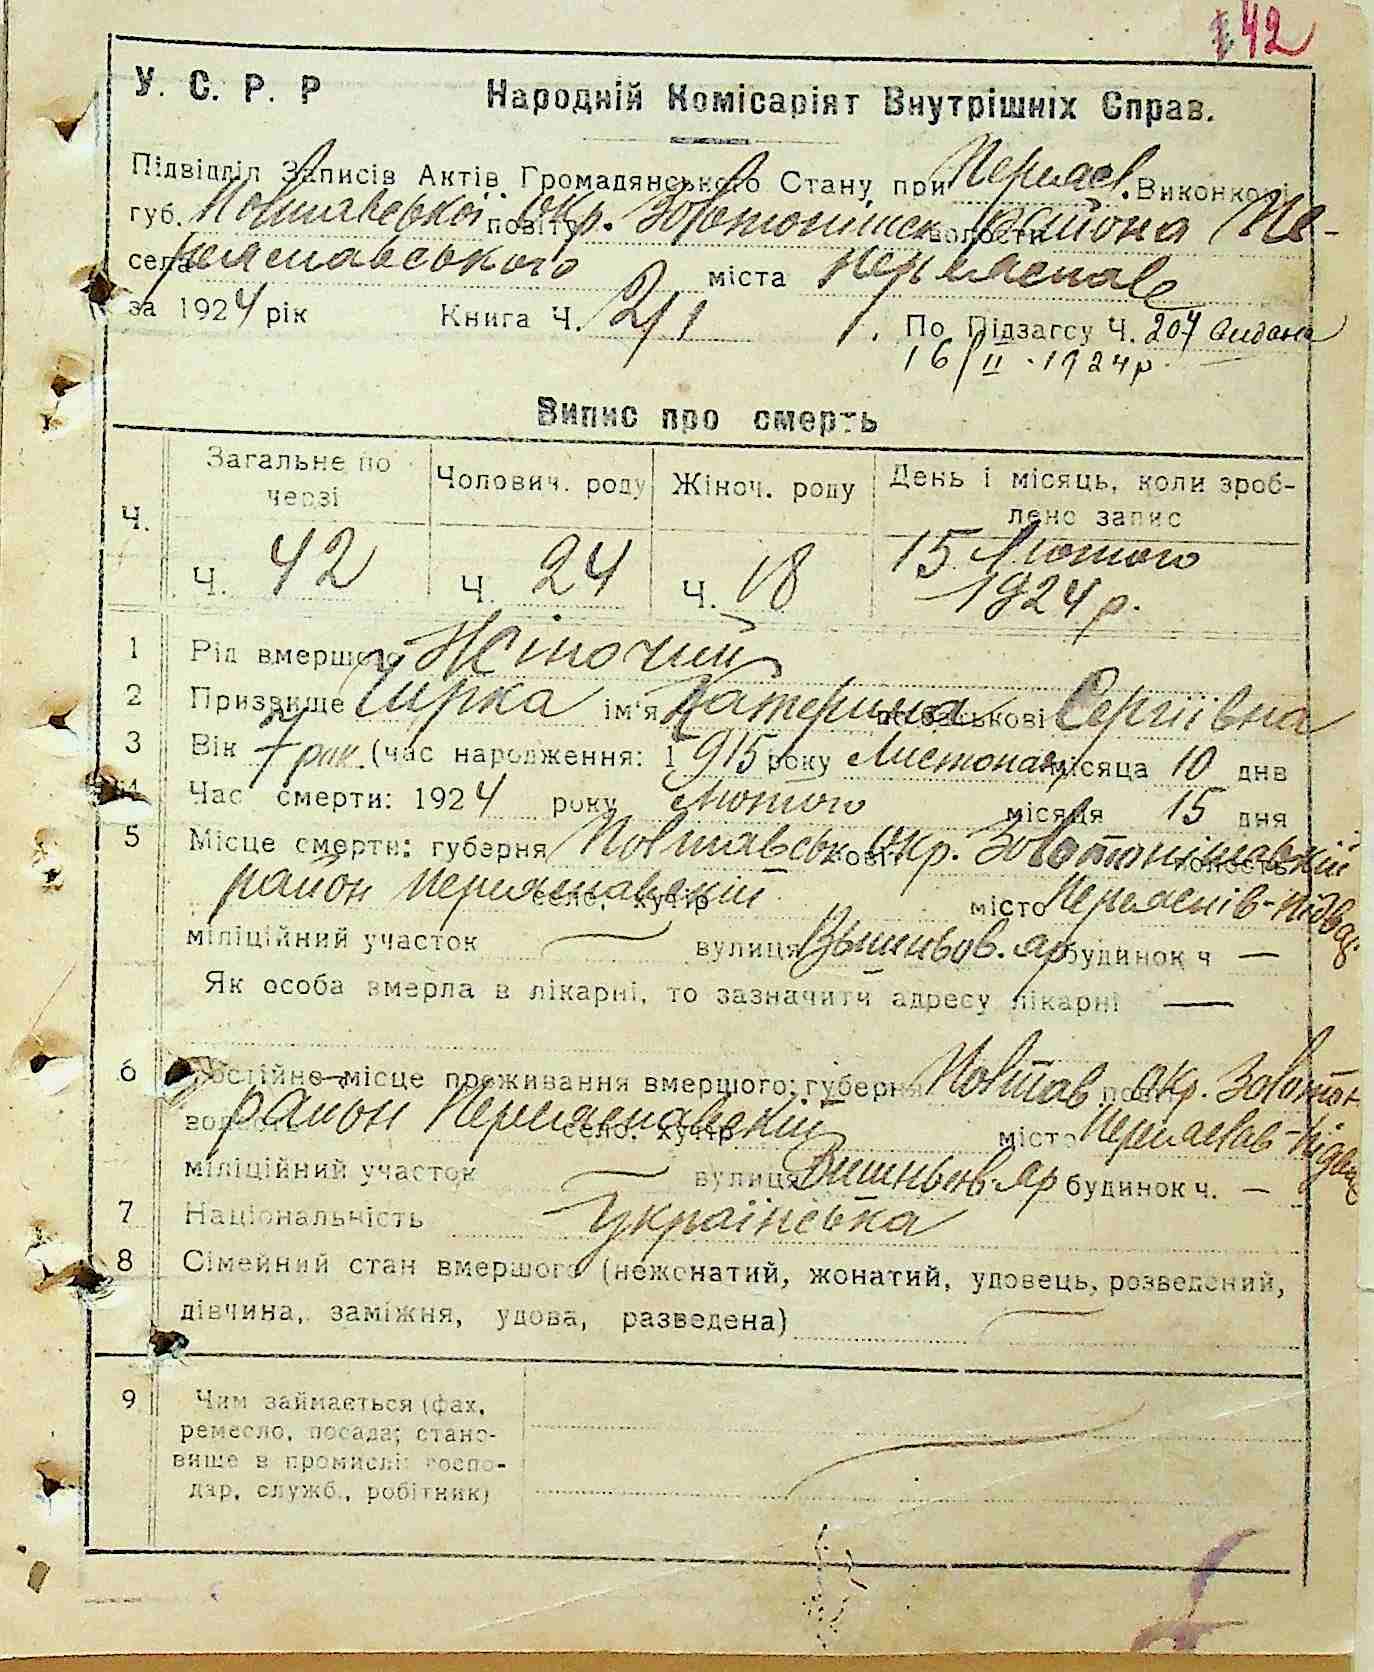 42
У. С. Р. Р Народній Комісаріят Внутрішніх Справ.
Підвідділ Записів Актів Громадянського Стану при Переяс. Виконкомі
губ. Полтавської повіту Окр. Золотоніськ волости района Пе-
села реяславського міста Переяслав
за 1924 рік Книга Ч. 2/1 По Підзагсу Ч. 204 видана
16/II 1924 р.
Випис про смерть
Ч. Загальне по черзі Чолович. роду Жіноч. роду День і місяць, коли зроб-
лено запис
Ч. 42 Ч. 24 Ч. 18 15 Лютого
1924 р.
1 Рід вмершого Жіночий
2 Призвище Чирка ім'я Катерина по батькові Сергіївна
3 Вік 7 рок. (час народження: 1915 року Листопад місяца 10 днв
4 Час смерти: 1924 року Лютого місяця 15 дня
5 Місце смерти: губерня Полтавськ повіт Окр. Золотонішській волость
район Переяславскій село, хутір місто Переяслів-Підвар
міліційний участок вулиця Вышньов. яр будинок ч —
Як особа вмерла в лікарні, то зазначити адресу лікарні —
6 Постійне місце проживання вмершого: губерня Полтав повіт окр. Золотон
волость район Переяславскій село, хутір місто Переяслав-Підвар
міліційний участок вулиця Вишньов. яр будинок ч. —
7 Національність Українська
8 Сімейний стан вмершого (нежонатий, жонатий, удовець, розведений,
дівчина, заміжня, удова, разведена)
9 Чим займається (фах,
ремесло, посада; стано-
вище в промислі: госпо-
дар, служб., робітник)